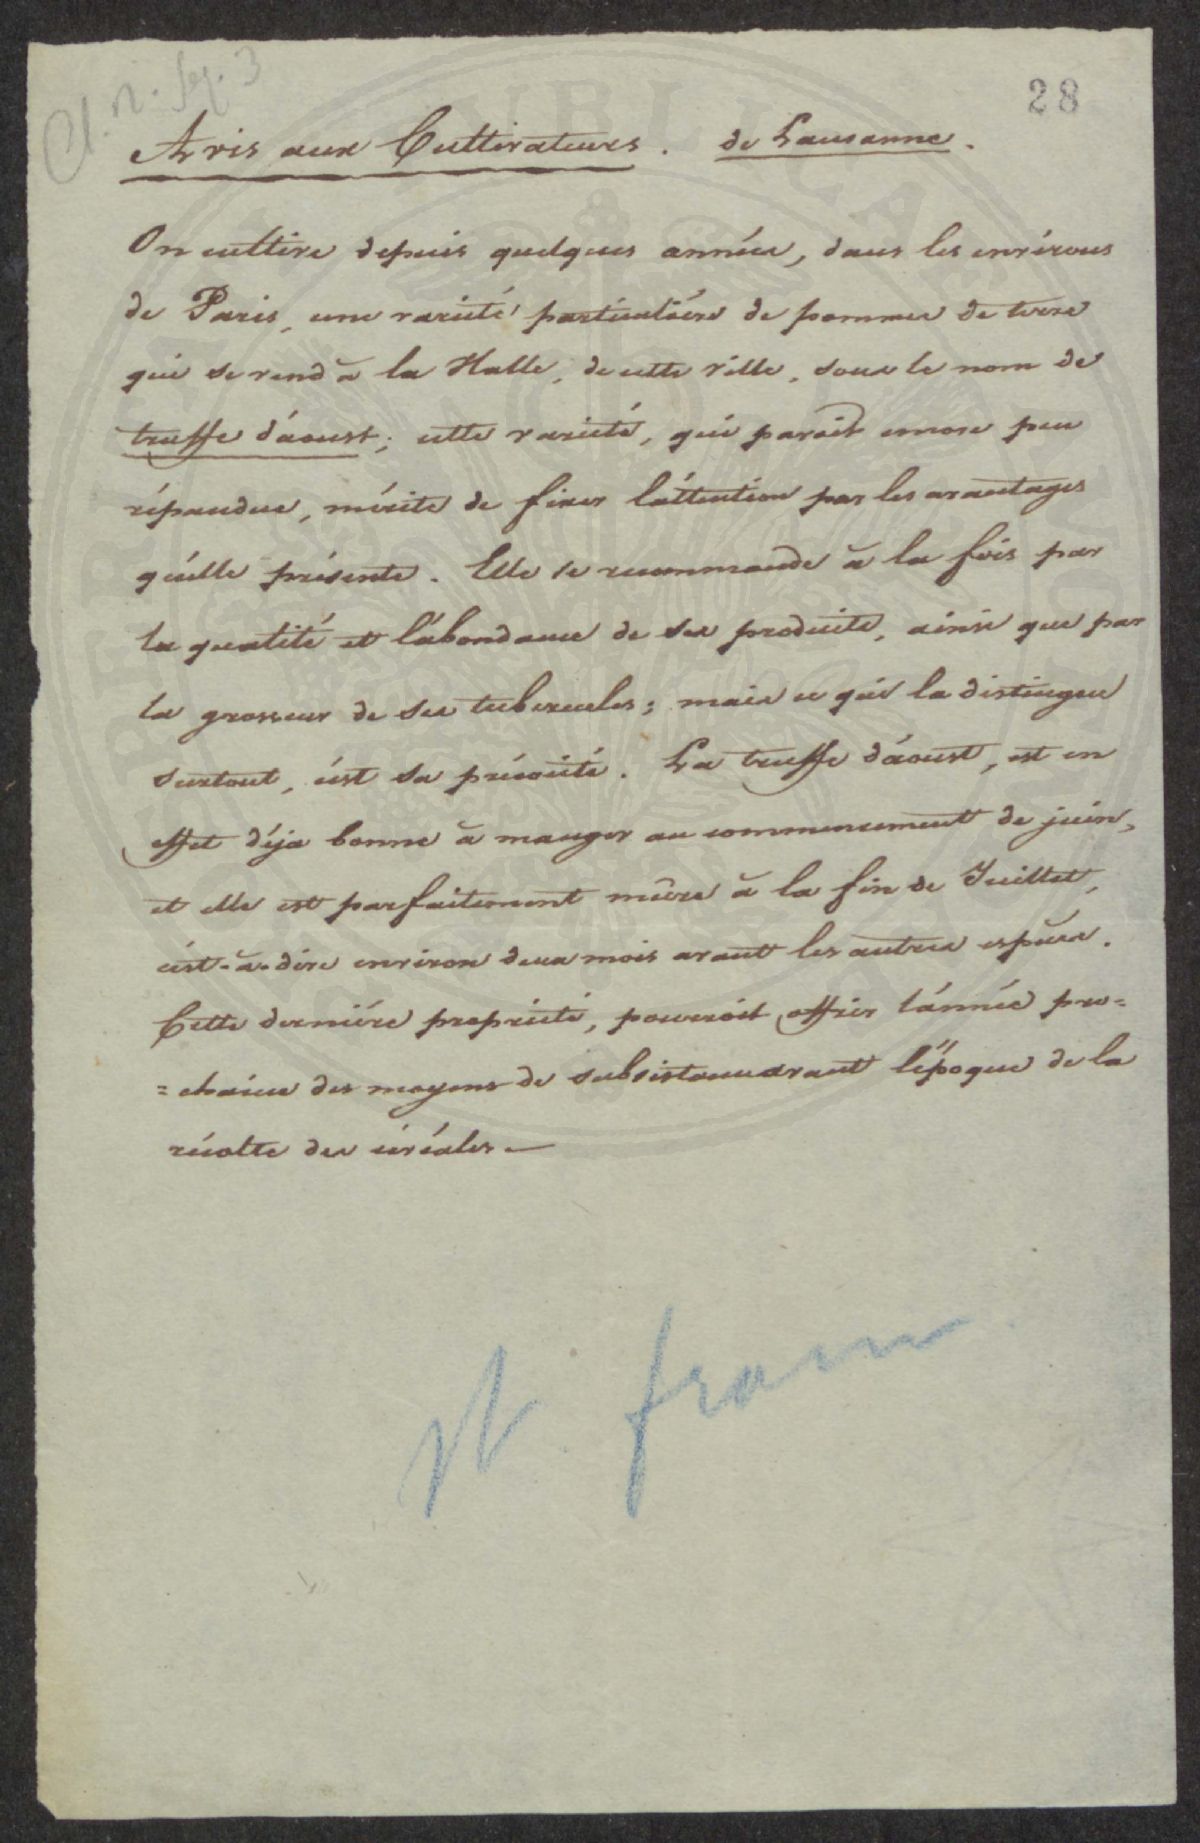 28
Avis aux Cultivateurs. de Lausanne.
On cultive depuis quelques années, dans les environs
de Paris, une variété particulière de pommes de terre
qui se vend à la Halle, de cette ville, sous le nom de
truffe d'aoust; cette variété, qui paroit encore peu
répandue, mérite de fixer l'attention par les avantages
qu'elle présente. Elle se recommande à la fois par
la qualité et l'abondance de ses produits, ainsi que par
la grosseur de ses tubercules; mais ce qui la distingue
surtout, c'est sa précocité. La truffe d'aoust, est en
effet déja bonne à manger au commencement de juin,
et elle est parfaitement mûre à la fin de Juillet,
c'est-à-dire environ deux mois avant les autres espèces.
Cette dernière propriété, pourroit offrir l'année pro=
=chaine des moyens de subsistance avant l'époque de la
récolte des céréales.—